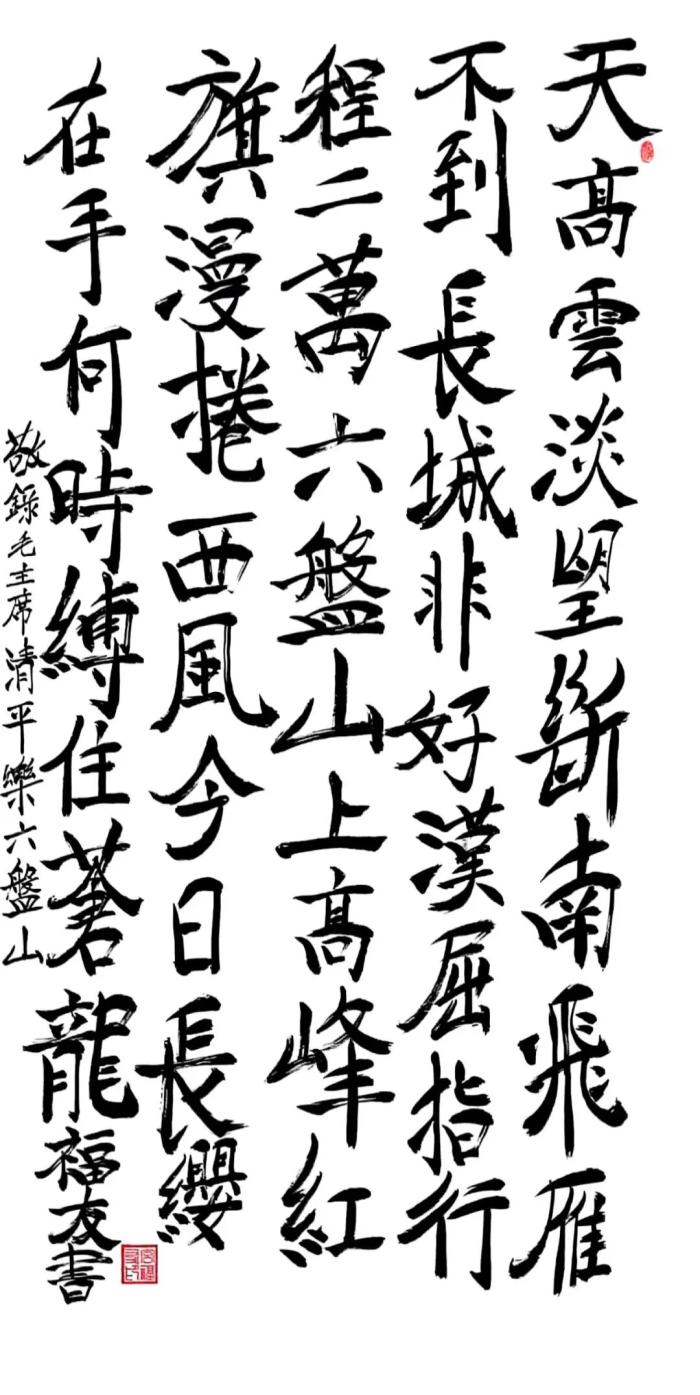 天高雲淡望斷南飛雁
不到長城非好漢屈指行
程二萬六盤山上高峰紅
旗漫捲西風今日長纓
在手何時縛住蒼龍
福友書
敬錄毛主席清平樂六盤山